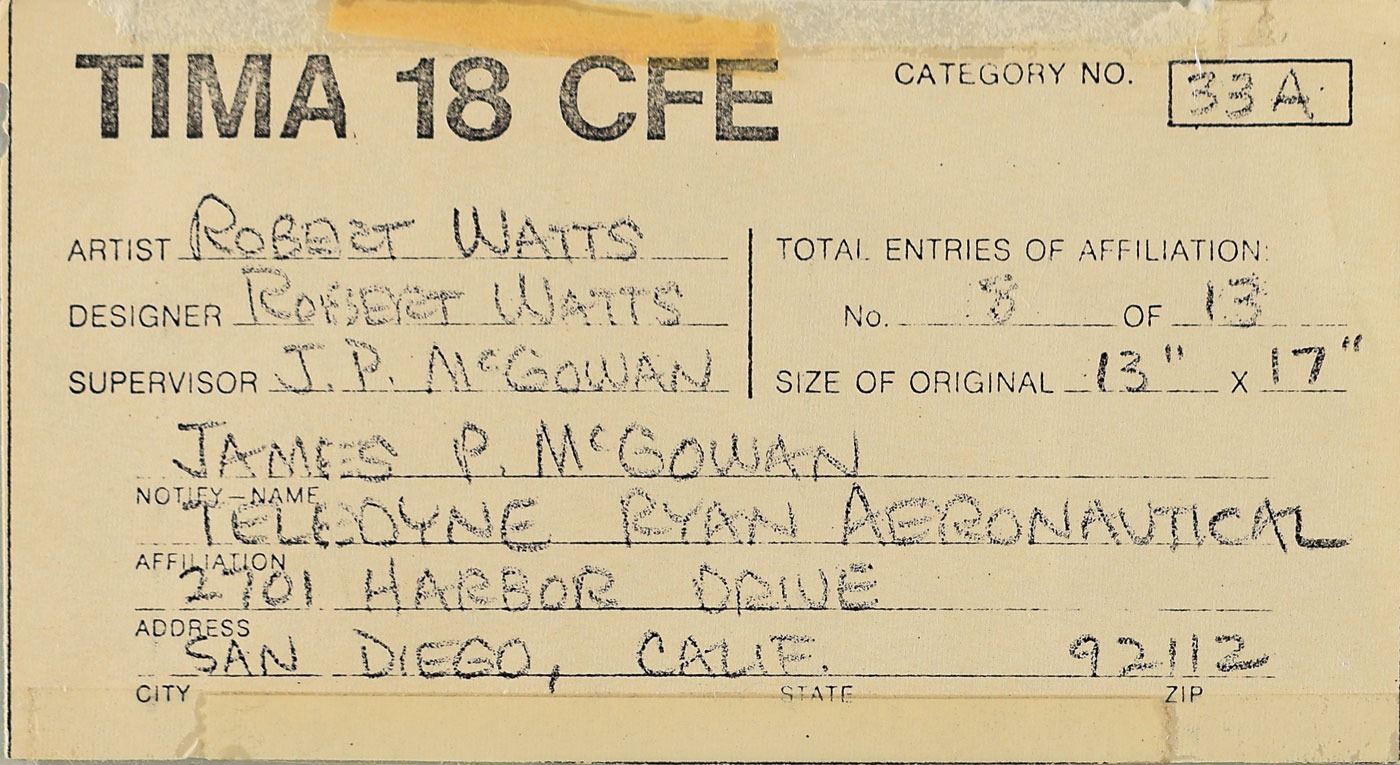 TIMA 18 CFE
CATEGORY NO. 33A
ARTIST ROBERT WATTS
DESIGNER ROBERT WATTS
SUPERVISOR J. P. McGOWAN
TOTAL ENTRIES OF AFFILIATION:
No. 8 OF 13
SIZE OF ORIGINAL 13" X 17"
JAMES P. McGOWAN
NOTIFY—NAME
TELEDYNE RYAN AERONAUTICAL
AFFILIATION
2701 HARBOR DRIVE
ADDRESS
SAN DIEGO, CALIF. 92112
CITY STATE ZIP